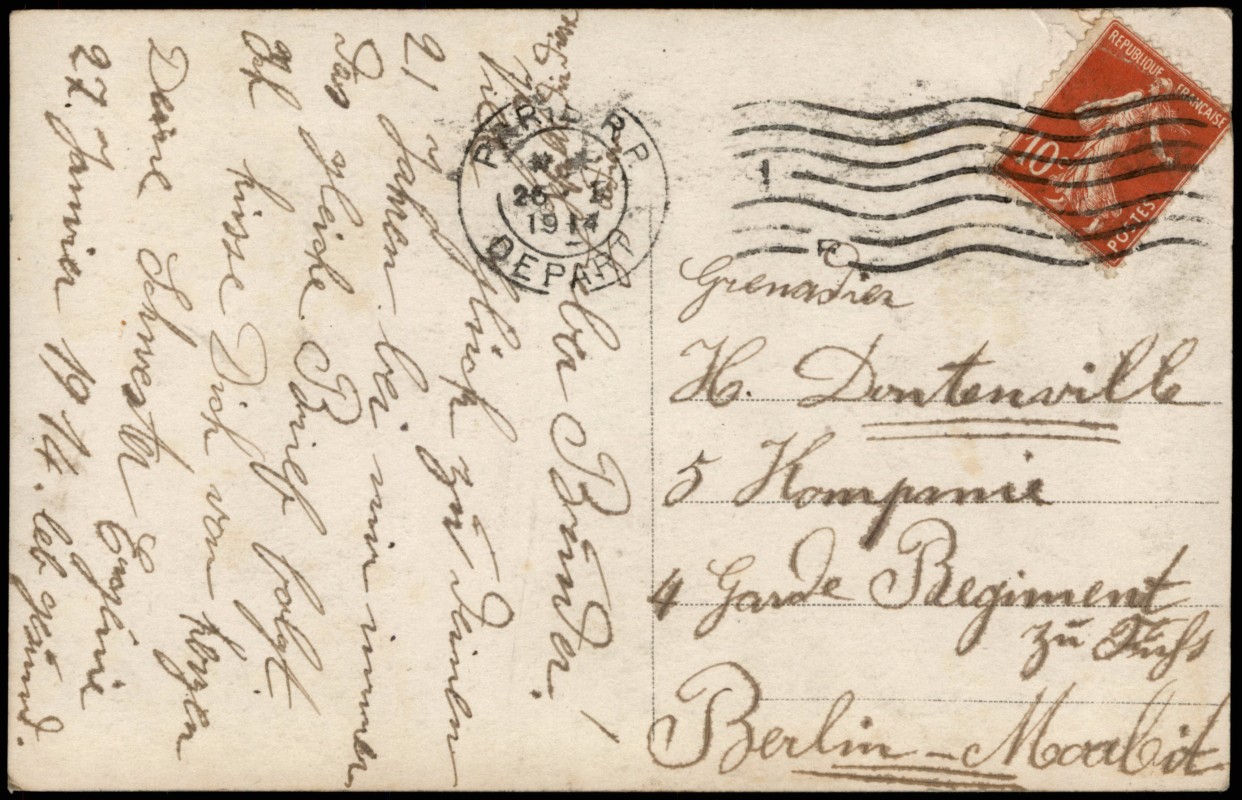 Lieber Bruder!
Viel Glück zu Deinem
21 Jahren. bei mir immer
das gleiche. Brief folgt.
Ich küsse Dich von Herzen
Deine Schwester Eugénie
27. Janvier 1914. leb gesund.
PARIS R.P.
25 1
1914
DEPART
REPUBLIQUE FRANÇAISE
10c
POSTES
1
Grenadier
H. Dontenville
5 Kompanie
4 Garde Regiment
zu Fuss
Berlin - Moabit